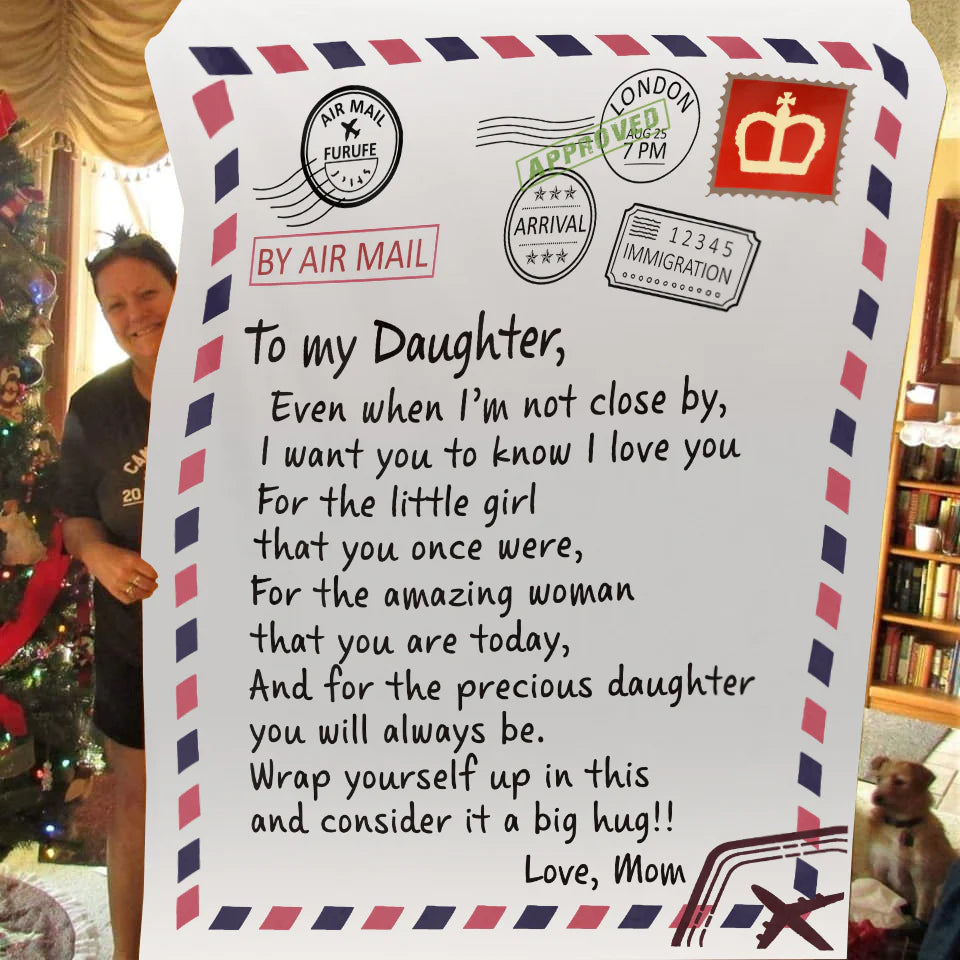 AIR MAIL
FURUFE
LONDON
AUG 25
7 PM
APPROVED
ARRIVAL
12345
IMMIGRATION
BY AIR MAIL
To my Daughter,
Even when I'm not close by,
I want you to know I love you
For the little girl
that you once were,
For the amazing woman
that you are today,
And for the precious daughter
you will always be.
Wrap yourself up in this
and consider it a big hug!!
Love, Mom
20